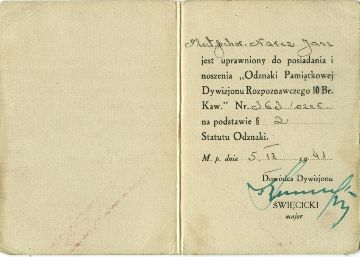 Plut/pchor. Narcz Jan
jest uprawniony do posiadania i
noszenia „Odznaki Pamiątkowej
Dywizjonu Rozpoznawczego 10 Br.
Kaw.” Nr. 363/
na podstawie § 2
Statutu Odznaki.
M. p. dnia 5. IX 1941
Dowódca Dywizjonu
ŚWIĘCICKI
major